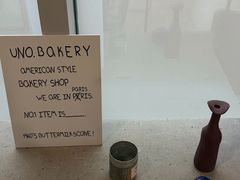 UNO. BAKERY
AMERICAN STYLE
BAKERY SHOP
PARIS
WE ARE IN PARIS.
NO.1 ITEM IS______
PINO'S BUTTERMILK SCONE!